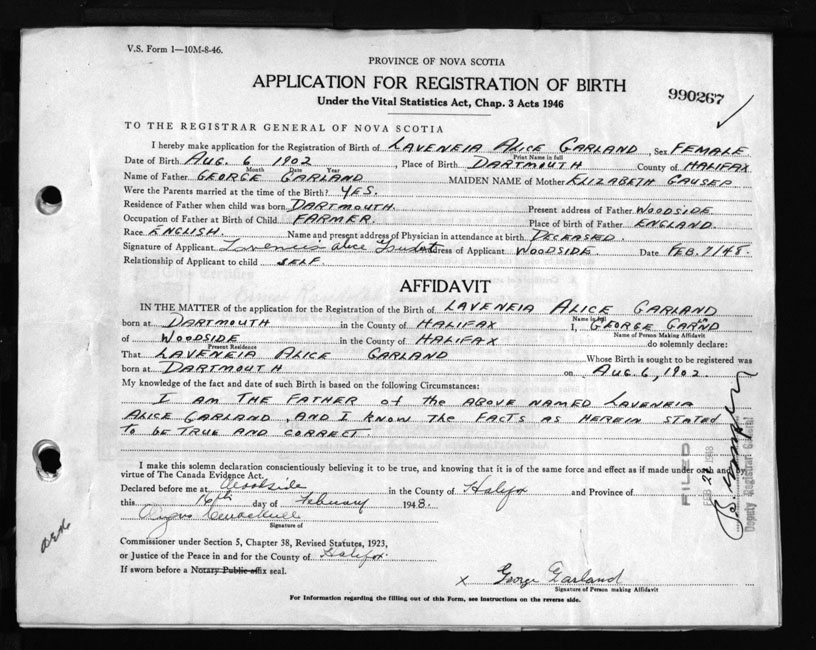 V.S. Form 1—10M-8-46.
PROVINCE OF NOVA SCOTIA
APPLICATION FOR REGISTRATION OF BIRTH
990267
Under the Vital Statistics Act, Chap. 3 Acts 1946
TO THE REGISTRAR GENERAL OF NOVA SCOTIA
I hereby make application for the Registration of Birth of LAVENEIA ALICE GARLAND, Sex FEMALE
Print Name in full
Date of Birth AUG. 6 1902, Place of Birth DARTMOUTH County of HALIFAX
Month Date Year
Name of Father GEORGE GARLAND MAIDEN NAME of Mother ELIZABETH
Were the Parents married at the time of the Birth? YES.
Residence of Father when child was born DARTMOUTH. Present address of Father WOODSIDE.
Occupation of Father at Birth of Child FARMER. Place of birth of Father ENGLAND.
Race ENGLISH. Name and present address of Physician in attendance at birth DECEASED.
Signature of Applicant Alice Address of Applicant WOODSIDE. Date FEB. 7/48.
Relationship of Applicant to child SELF.
AFFIDAVIT
IN THE MATTER of the application for the Registration of the Birth of LAVENEIA ALICE GARLAND
Name in full
born at DARTMOUTH in the County of HALIFAX I, GEORGE
Name of Person Making Affidavit
of WOODSIDE in the County of HALIFAX do solemnly declare:
Present Residence
That LAVENEIA ALICE GARLAND Whose Birth is sought to be registered was
born at DARTMOUTH on AUG. 6, 1902.
My knowledge of the fact and date of such Birth is based on the following Circumstances:
I AM THE FATHER of the ABOVE NAMED LAVENEIA
ALICE GARLAND, AND I KNOW The FACTS AS HEREIN STATED
to BE TRUE AND CORRECT.
I make this solemn declaration conscientiously believing it to be true, and knowing that it is of the same force and effect as if made under oath and
virtue of The Canada Evidence Act.
Declared before me at Woodside in the County of Halifax and Province of
this 16th day of February 1948.
Angus
Signature of
Commissioner under Section 5, Chapter 38, Revised Statutes, 1923,
or Justice of the Peace in and for the County of Halifax.
If sworn before a Notary Public affix seal.
x George Garland
Signature of Person making Affidavit
For Information regarding the filling out of this Form, see instructions on the reverse side.
FILED
FEB 1948
Deputy Registrar General